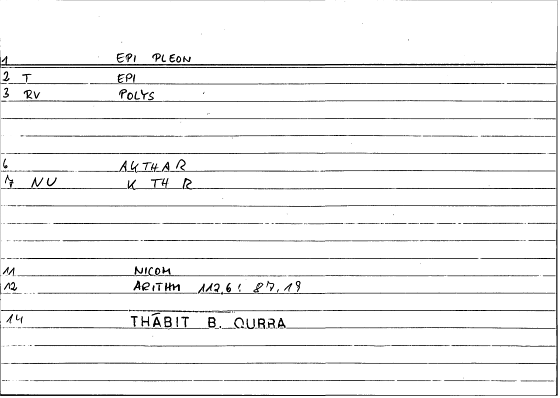 1 EPI PLEON
2 T EPI
3 RV POLYS
6 AKTHAR
7 NU K TH R
11 NICOM
12 ARITHM 112,6: 87,19
14 THĀBIT B. QURRA